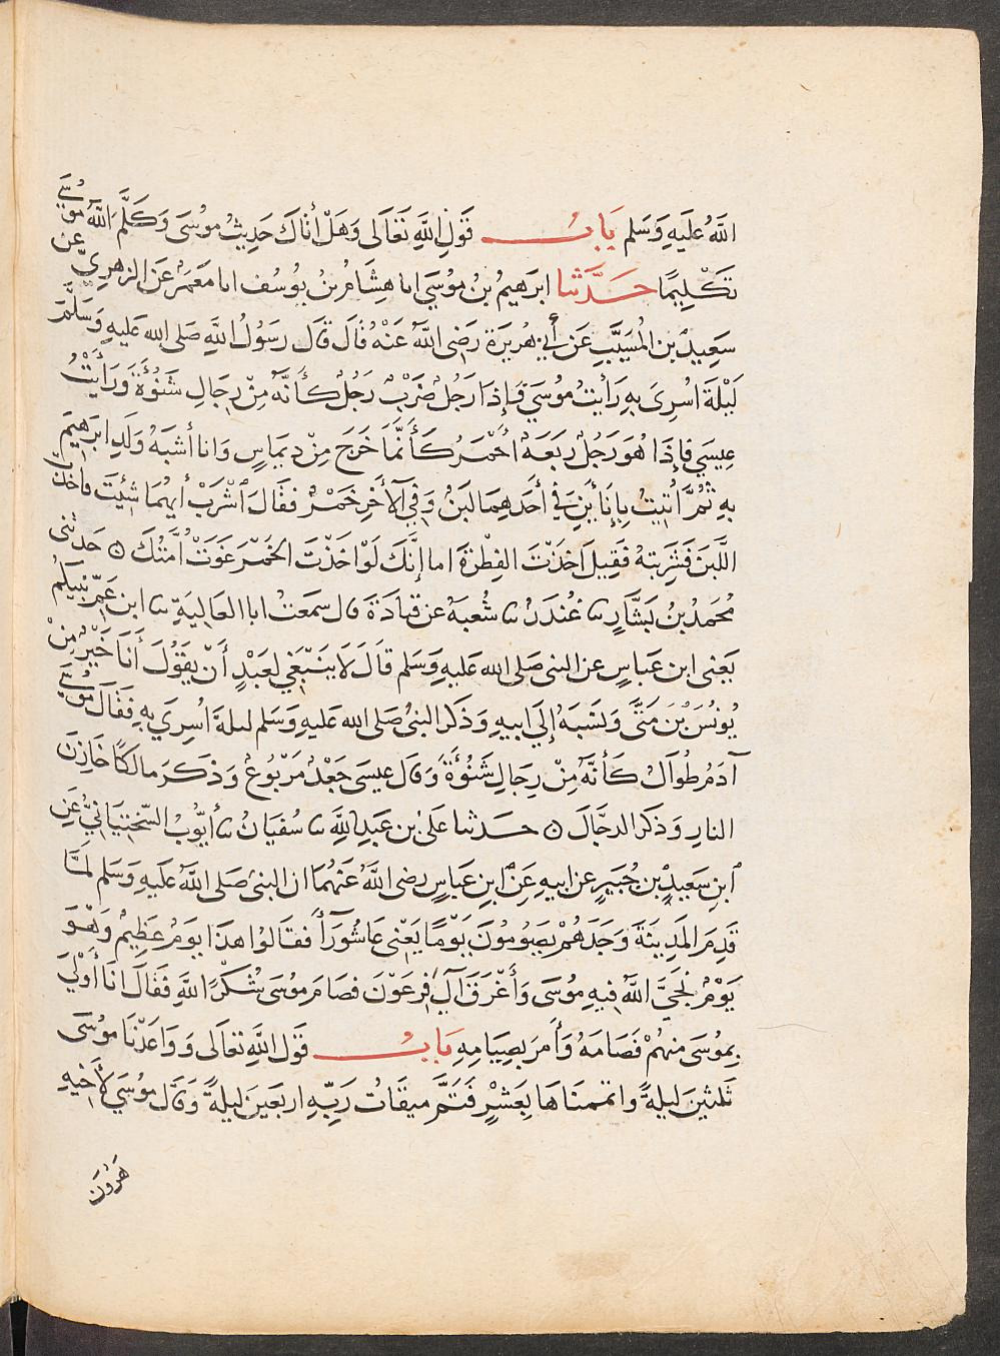 اللَّهُ عَلَيهِ وَسَلم بَابُ قَولِ اللَّهِ تَعَالَى وَهَلْ أتَاكَ حَدِيثُ مُوسَى وَكَلَّمَ اللَّهُ مُوسَى
تَكْلِيمًا حَدَّثنا ابرَهيمُ بنُ مُوسَى انا هِشَامُ بنُ يُوسُف انا مَعمَرٌ عَن الزهرِيّ عن
سَعِيدِ بن المُسَيَّبِ عَن أَبي هُرَيرَة رَضى اللَّهُ عَنْهُ قَالَ قَالَ رَسُولُ اللَّهِ صَلى الله عَليهِ وَسَلَّمَ
لَيْلةَ اسْرِىَ بهِ رَأيْتُ مُوسَى فَإِذَا رَجُلٌ ضَرْبٌ رَجُلٌ كَأَنَّهُ مِنْ رِجَالِ شَنُؤَةَ وَرَأَيْتُ
عِيسَى فَإِذَا هُوَ رَجُلٌ رَبعَةٌ احْمَرُ كَأَنَّمَا خَرَجَ مِنْ دِيمَاسٍ وَانا أشبَهُ وَلَدِ ابرَهيمَ
بهِ ثُمَّ أُتِيتُ بِإِنَاءَيْنِ فِي أَحَدِهِمَا لَبَنٌ وَفِي الآخَرِ خَمْرٌ فَقَالَ اشْرَبْ أَيهُمَا شِئتَ فاخذتُ
اللَّبَنَ فَشَرِبتهُ فَقِيلَ اَخَذْتَ الفِطْرَةَ اما إنَّكَ لَوْ اَخَذْتَ الخَمْرَ غَوَتْ أُمَّتُكَ ه حَدثنى
مُحَمدُ بنُ بَشَّارٍ ثنا غُندَرٌ ثنا شُعبَةُ عن قتادَةَ قال سمَعتُ ابا العَالِيَةِ ثنا ابن عَمِّ نبيكم
يَعنى ابن عَباسٍ عن النبى صَلى الله عَليهِ وَسَلم قَالَ لَا يَنْبَغِي لِعَبْدٍ أَنْ يَقُولَ أَنَا خَيْرٌ مِنْ
يُونُسَ بْنِ مَتَّى وَنَسَبَهُ إِلَى ابيهِ وَذَكرَ النبىُ صَلى الله عَليهِ وَسَلم ليلةَ أُسرِيَ بهِ فَقَالَ مُوسَى
آدَمُ طُوَالٌ كَأَنَّهُ مِنْ رِجَالِ شَنُؤَةَ وَقال عِيسَى جَعْدٌ مَرْبُوعٌ وَذَكَرَ مَالِكًا خَازِنَ
النارِ وَذكَرَ الدجَّالَ ه حَدثنا عَلىُ بن عَبدِ اللَّهِ ثنا سُفيَانُ ثنا أَيُّوبُ السّخْتِيَانِيُّ عَنِ
ابنِ سَعِيدِ بن جُبَيرٍ عن ابيهِ عَنِ ابنِ عَباسٍ رضى اللَّهُ عَنهُمَا ان النبىَ صَلى اللَّهُ عَلَيهِ وَسَلم لَمَّا
قَدِمَ المَدِينَةَ وَجَدَهُمْ يَصُومُونَ يَوْمًا يَعْنِي عَاشُورَاءَ فقَالوُا هذَا يومٌ عَظِيمٌ وَهْوَ
يَوْمٌ نَجَّى اللَّهُ فِيهِ مُوسَى وَأَغْرَقَ آلَ فِرعَوْنَ فَصَامَ مُوسَى شُكْرًا للَّهِ فَقَالَ انَا أَوْلَى
بِمُوسَى مِنهُمْ فَصَامَهُ وَأَمَرَ بِصِيَامِهِ بَابُ قَوْل اللَّهِ تعَالَى وَوَاعَدْنَا مُوسَى
ثَلثينَ لَيلَةً واتممنَاهَا بِعَشْرٍ فَتَمَّ مِيقَاتُ رَبِّهِ اربَعينَ لَيلَةً وَقَالَ مُوسَى لِأَخِيهِ
هَرُونَ